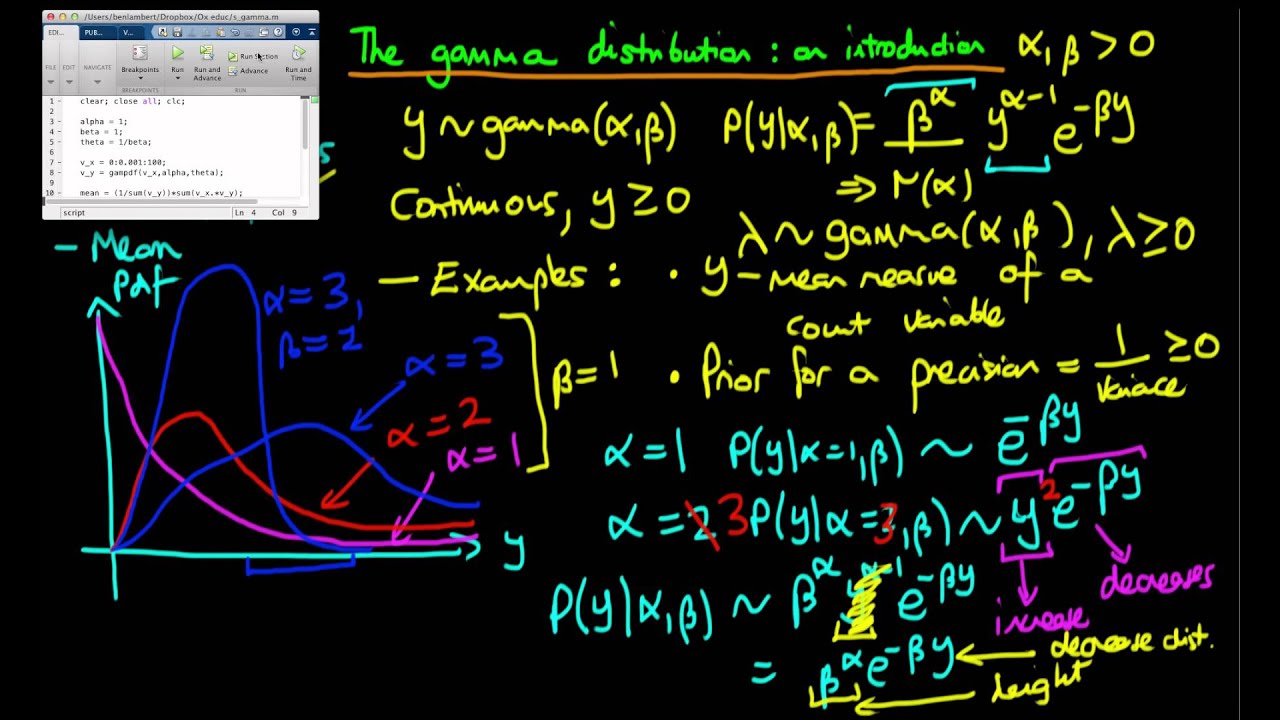 /Users/benlambert/Dropbox/Ox educ/s_gamma.m
EDI... PUB... V...
FILE EDIT NAVIGATE Breakpoints Run Run and Advance Run Section Advance Run and Time
BREAKPOINTS RUN
1 clear; close all; clc;
2
3 alpha = 1;
4 beta = 1;
5 theta = 1/beta;
6
7 v_x = 0:0.001:100;
8 v_y = gampdf(v_x,alpha,theta);
9
10 mean = (1/sum(v_y))*sum(v_x.*v_y);
script Ln 4 Col 9
The gamma distribution : an introduction α,β > 0
y ~ gamma(α,β) P(y|α,β) = β^α y^α-1 e^-βy
⇒ Γ(α)
Continuous, y ≥ 0
λ ~ gamma(α,β), λ ≥ 0
- Mean
- Examples : · y - mean measure of a
count variable
· Prior for a precision = 1/variace ≥ 0
Pdf
α = 3,
β = 2
α = 3
α = 2
α = 1
β = 1
y
α = 1 P(y|α=1,β) ~ e^-βy
α = 2 3 P(y|α=3,β) ~ y^2 e^-βy
increase
decreases
P(y|α,β) ~ β^α y^α-1 e^-βy
= β^α e^-βy ← decrease dist.
← height